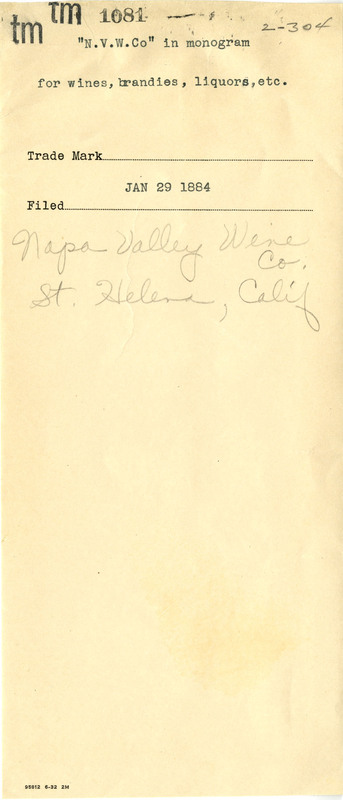 tm tm 1081 2-304
"N.V.W.Co" in monogram
for wines, brandies, liquors, etc.
Trade Mark
JAN 29 1884
Filed
Napa Valley Wine
Co.
St. Helena, Calif
95812 6-32 2M